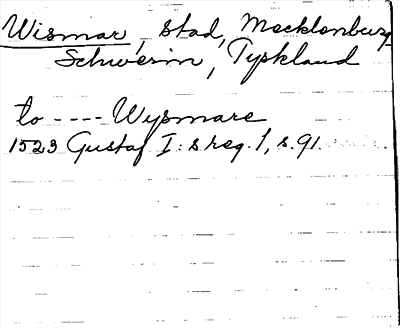 Wismar, stad, Mecklenburg-
Schwerin, Tyskland
to ---- Wysmare
1523 Gustaf I: s reg. 1, s. 91.